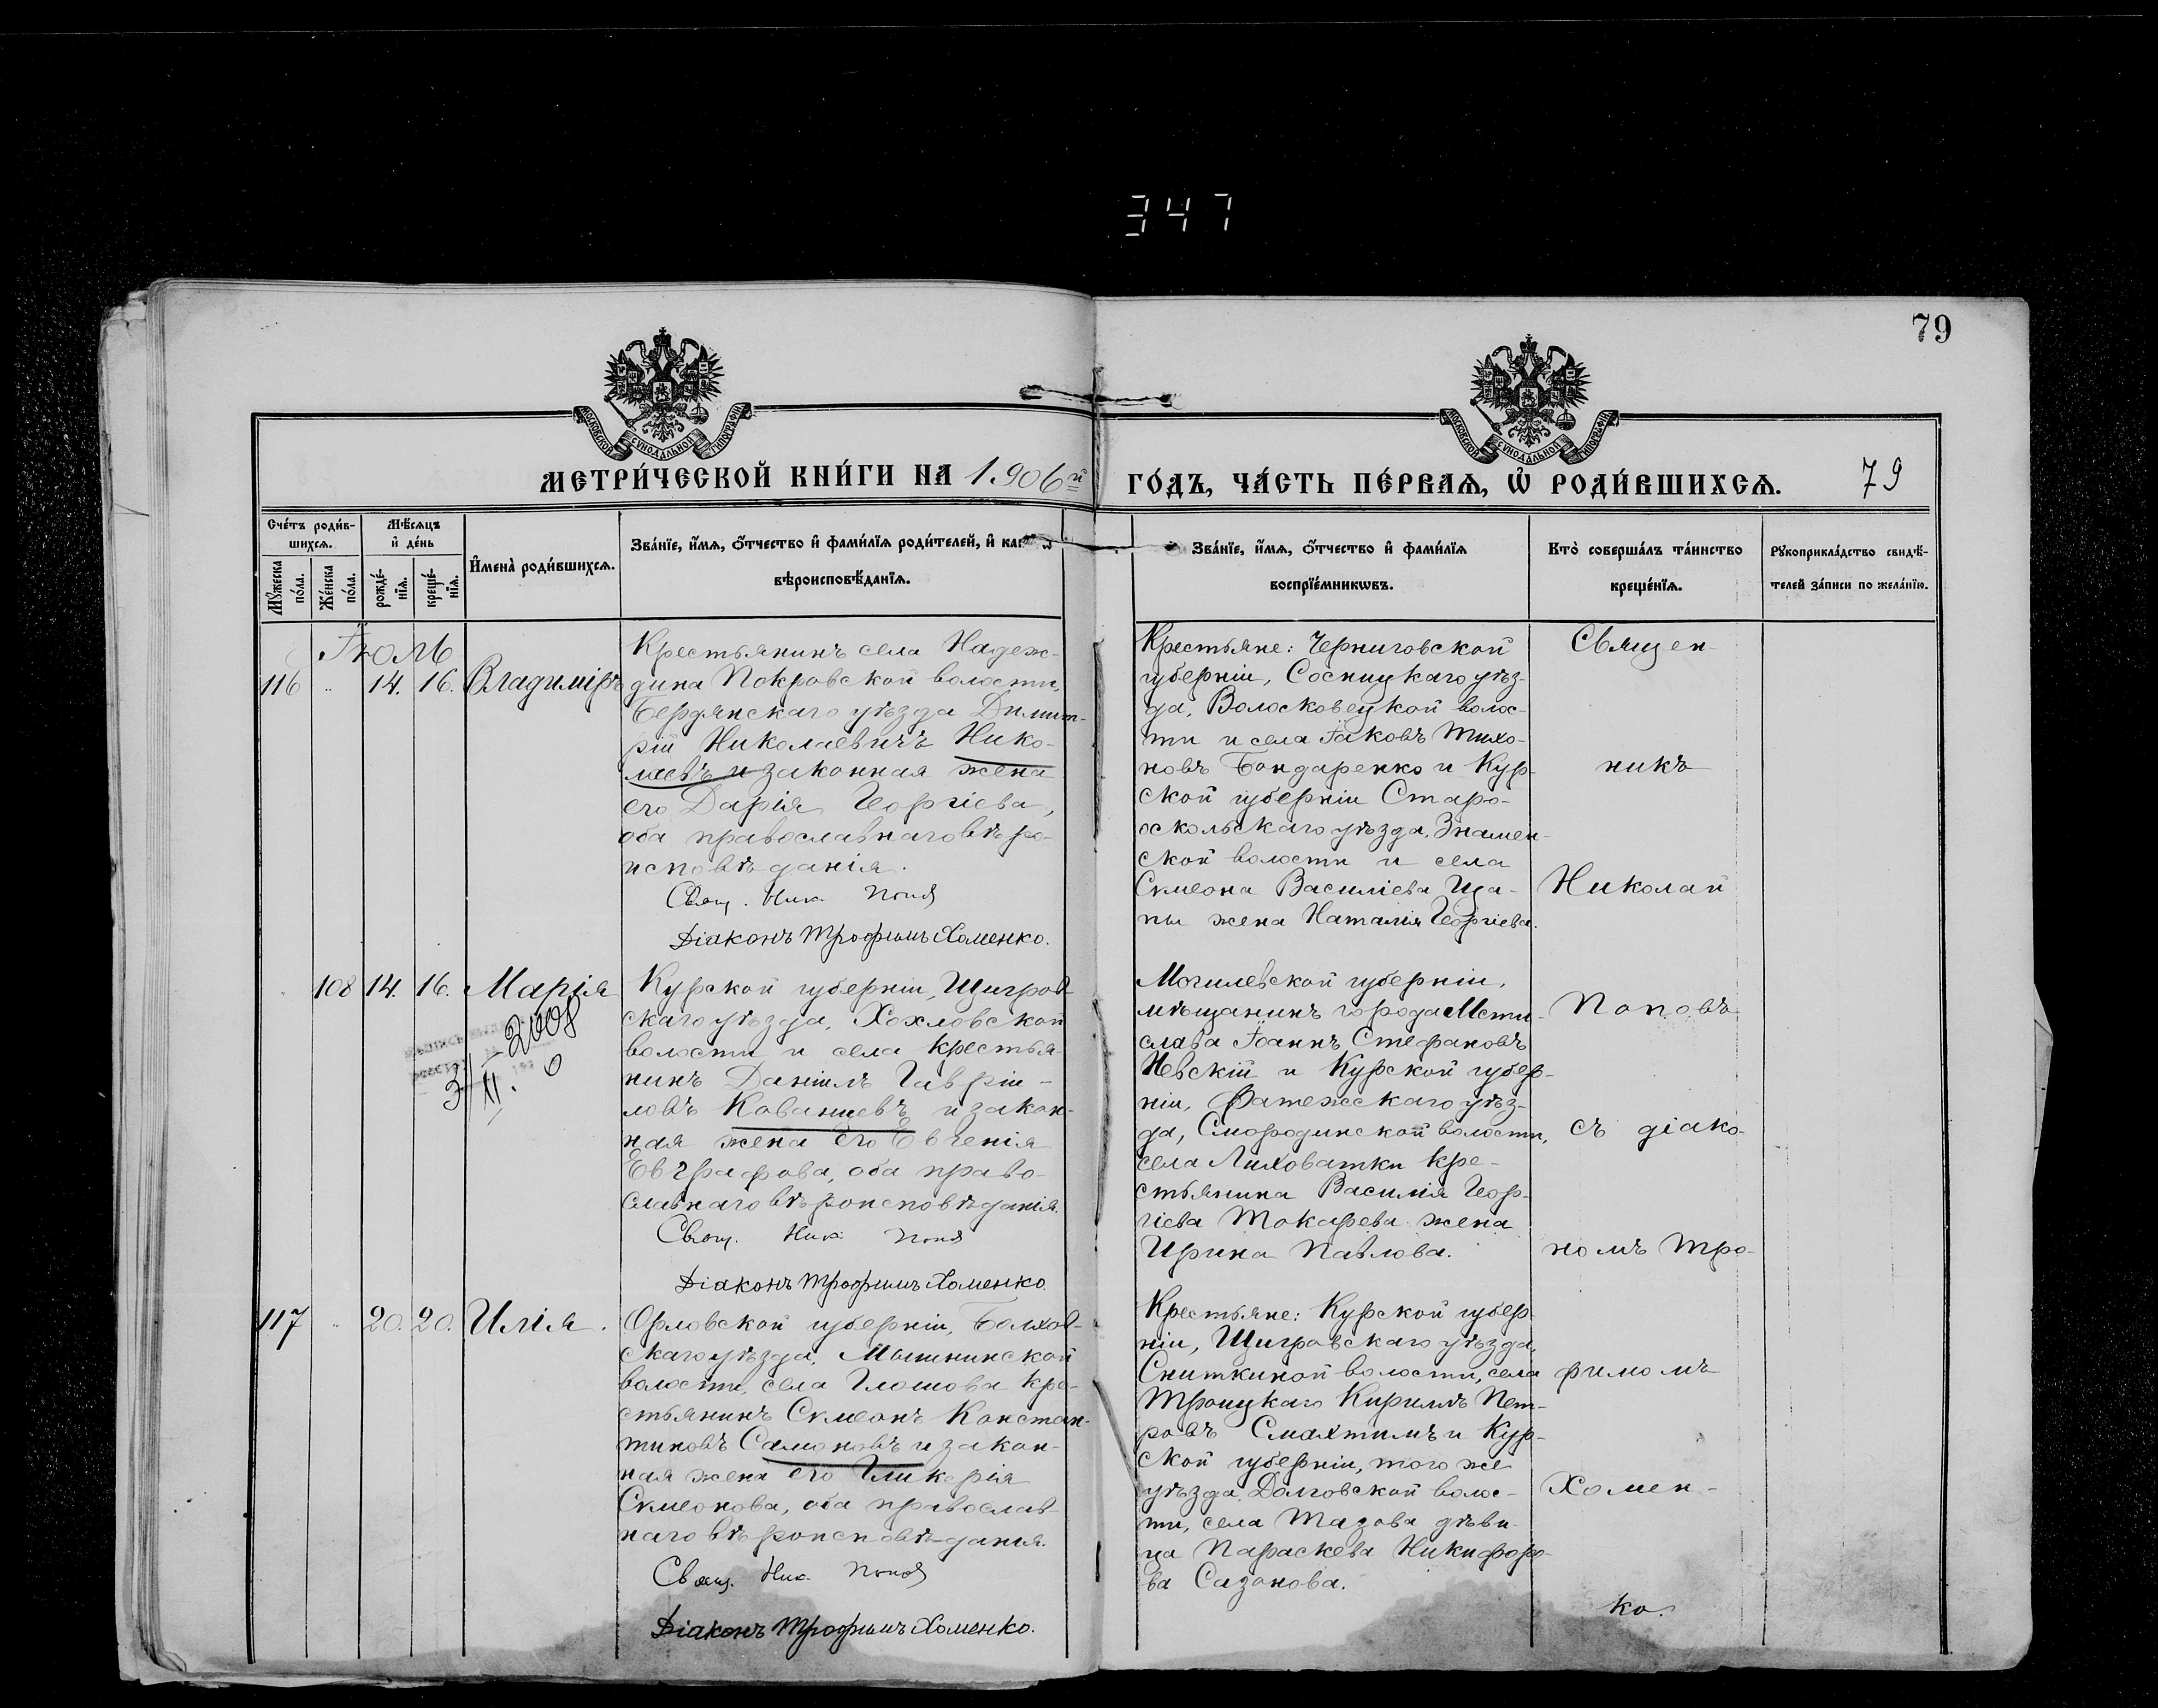 347
79
МОСКОВСКОЙ СУНОДАЛЬНОЙ ТИПОГРАФІИ
МОСКОВСКОЙ СУНОДАЛЬНОЙ ТИПОГРАФІИ
МЕТРИ́ЧЕСКОЙ КНИ́ГИ НА 1906й ГО́ДЪ, ЧА́СТЬ ПЕ́РВАѦ, Ѽ РОДИ́ВШИХСѦ. 79
Сче́тъ роди́в-
шихсѧ.
Мꙋ́жеска по́ла.
Же́нска по́ла.
Мѣ́сѧцъ
и҆ де́нь
рожде́-
нїѧ.
креще́-
нїѧ.
И҆мена̀ роди́вшихсѧ.
Зва́нїе, и҆́мѧ, ѻ҆́тчество и҆ фами́лїѧ роди́телей, и҆
вѣроисповѣ́данїѧ.
Зва́нїе, и҆́мѧ, ѻ҆́тчество и҆ фами́лїѧ
воспрїе́мникѡвъ.
Кто̀ соверша́лъ та́инство
креще́нїѧ.
Рꙋкоприкла́дство свидѣ́-
телей за́писи по жела́нїю.
Іюль
116 " 14. 16. Владиміръ
Крестьянинъ села Надеж-
дина Покровской волости,
Бердянскаго уѣзда Димит-
рій Николаевичъ Нико-
лаевъ и законная жена
его Дарія Георгіева,
оба православнаго вѣро-
исповѣданія.
Свящ. Ник. Поповъ
Діаконъ Трофимъ Хоменко.
Крестьяне: Черниговской
губерніи, Сосницкаго уѣз-
да, Волосковецкой волос-
ти и села Іаковъ Тихо-
новъ Бондаренко и Кур-
ской губерніи Старо-
оскольскаго уѣзда, Знамен-
ской волости и села
Симеона Василіева Ща-
пы жена Наталія Георгіева.
108 14. 16. Марія
2008
31
II. 0
Курской губерніи, Щигров-
скаго уѣзда, Хохловской
волости и села крестья-
нинъ Даніилъ Гаврiи-
ловъ Кованцевъ и закон-
ная жена его Евгенія
Евграфова, оба право-
славнаго вѣроисповѣданія.
Свящ. Ник. Поповъ
Діаконъ Трофимъ Хоменко.
Могилевской губерніи,
мѣщанинъ города Мсти-
слава Іоаннъ Стефановъ
Невскій и Курской губер-
ніи, Фатежскаго уѣз-
да, Смородинской волости,
села Лиховатки кре-
стьянина Василія Геор-
гіева Токарева жена
Ирина Павлова.
117 " 20. 20. Илія.
Орловской губерніи, Болхов-
скаго уѣзда, Мошнинской
волости, села Глошова кре-
стьянинъ Симеонъ Констан-
тиновъ Самоновъ и закон-
ная жена его Гликерія
Симеонова, оба православ-
наго вѣроисповѣданія.
Свящ. Ник. Поповъ
Діаконъ Трофимъ Хоменко.
Крестьяне: Курской губер-
ніи, Щигровскаго уѣзда,
Сниткиной волости, села
Троицкаго Кириллъ Пет-
ровъ Смахтинъ и Кур-
ской губерніи, того же
уѣзда, Долговской волос-
ти, села Тазова дѣви-
ца Параскева Никифоро-
ва Сазонова.
Священ-
никъ
Николай
Поповъ
съ діако-
номъ Тро-
фимомъ
Хомен-
ко.